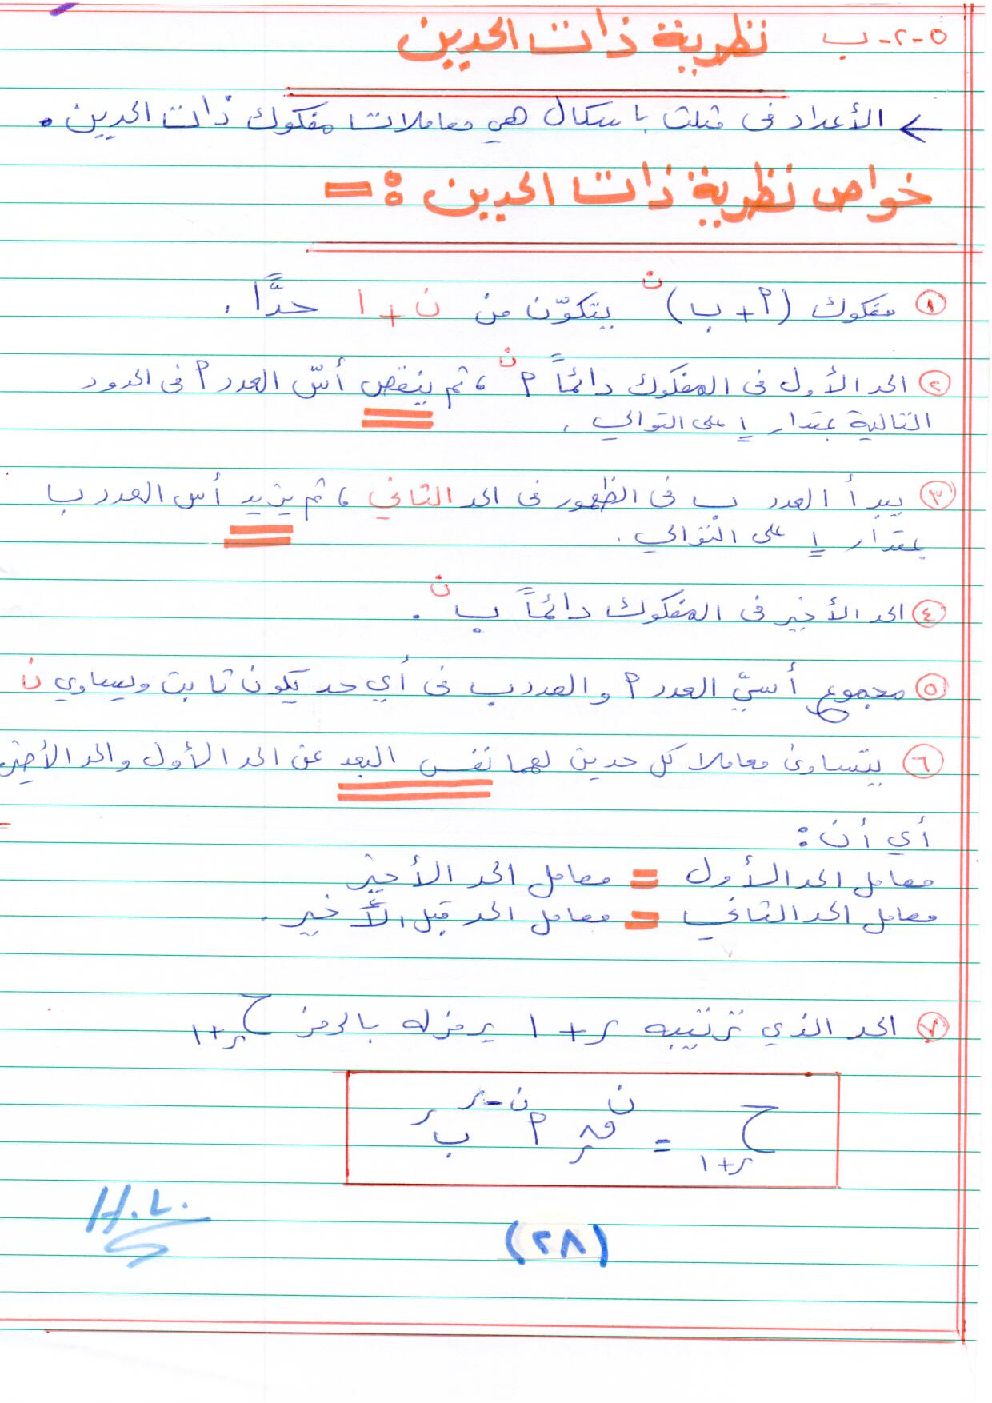 ٥-٢-ب نظرية ذات الحدين
← الأعداد فى مثلث باسكال هي معاملات مفكوك ذات الحدين .
خواص نظرية ذات الحدين : =
١ مفكوك (٢ + ب)ن يتكوّن من ن + ١ حدًّا .
٢ الحد الأول فى المفكوك دائمًا ٢ن ، ثم ينقص أسّ العدد ٢ فى الحدود
التالية بمقدار ١ على التوالي .
٣ يبدأ العدد ب فى الظهور فى الحد الثاني ، ثم يزيد أس العدد ب
بمقدار ١ على التوالي .
٤ الحد الأخير فى المفكوك دائمًا بن .
٥ مجموع أسيّ العدد ٢ والعدد ب فى أي حد يكون ثابت ويساوي ن
٦ يتساوى معاملا كل حدين لهما نفس البعد عن الحد الأول والحد الأخير
أي أن :
معامل الحد الأول = معامل الحد الأخير
معامل الحد الثاني = معامل الحد قبل الأخير .
٧ الحد الذي ترتيبه ر + ١ يرمز له بالرمز ح ر+١
ح ر+١ = ن ق ر ٢ ن-ر ب ر
H.L.
(٢٨)